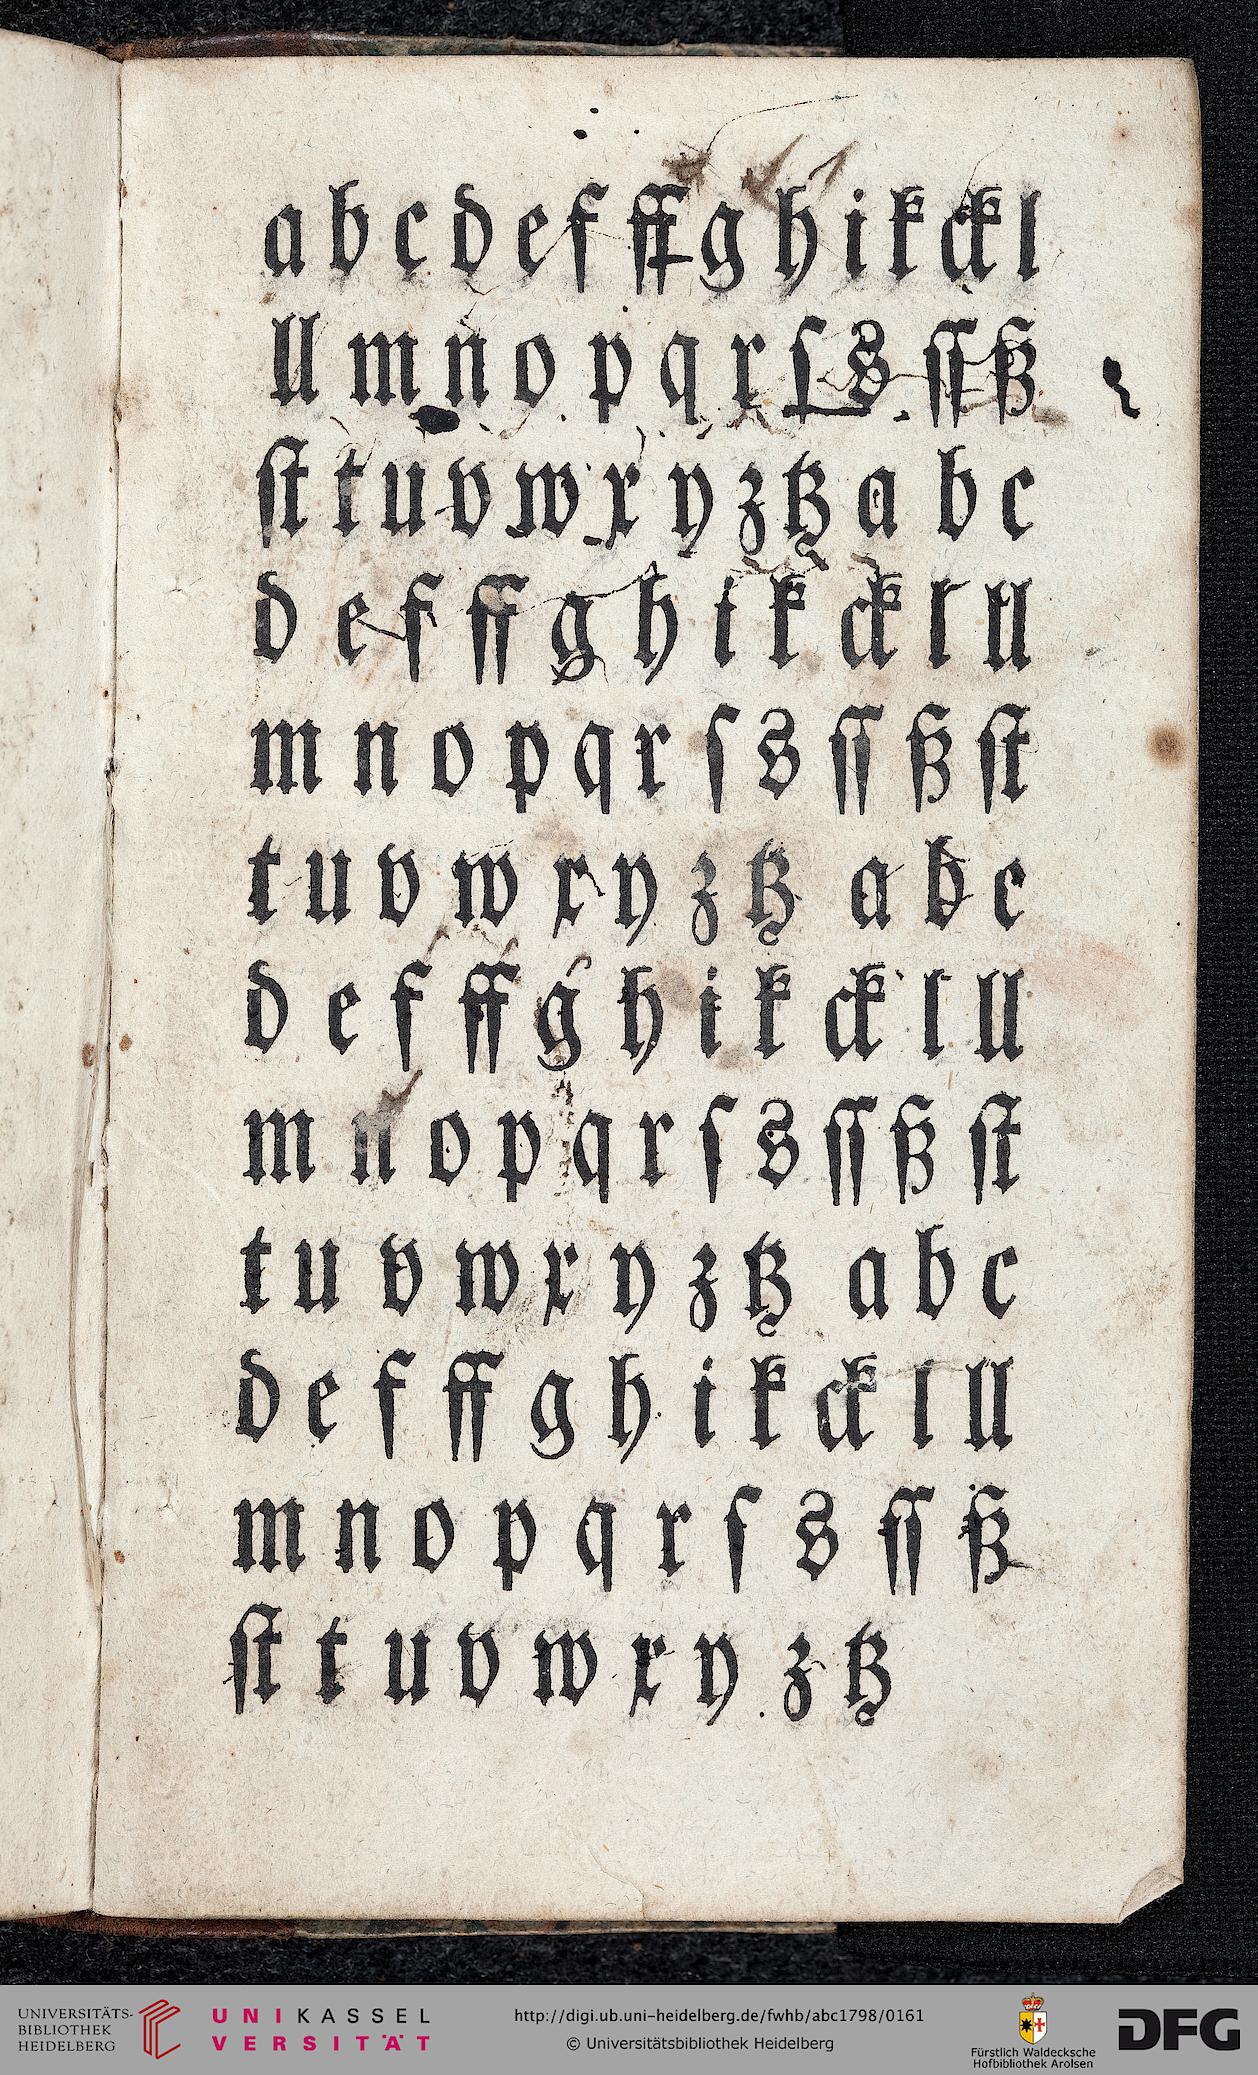 a b c d e f ff g h i k ck l
ll m n o p q r ſ s ſſ ß
ſt t u v w x y z tz a b c
d e f ff g h i k ck l ll
m n o p q r ſ s ſſ ß ſt
t u v w x y z tz a b c
d e f ff g h i k ck l ll
m n o p q r ſ s ſſ ß ſt
t u v w x y z tz a b c
d e f ff g h i k ck l ll
m n o p q r ſ s ſſ ß
ſt t u v w x y z tz
UNIVERSITÄTS-
BIBLIOTHEK
HEIDELBERG
UNIKASSEL
VERSITÄT
http://digi.ub.uni-heidelberg.de/fwhb/abc1798/0161
© Universitätsbibliothek Heidelberg
Fürstlich Waldecksche
Hofbibliothek Arolsen
DFG